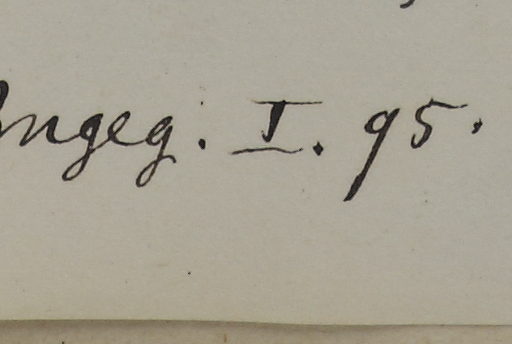 Angeg. I. 95.